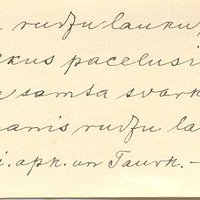 rudzu lauku
kus pacelusi
samta svark
anis rudzu la
i. apk. un Taurk. –